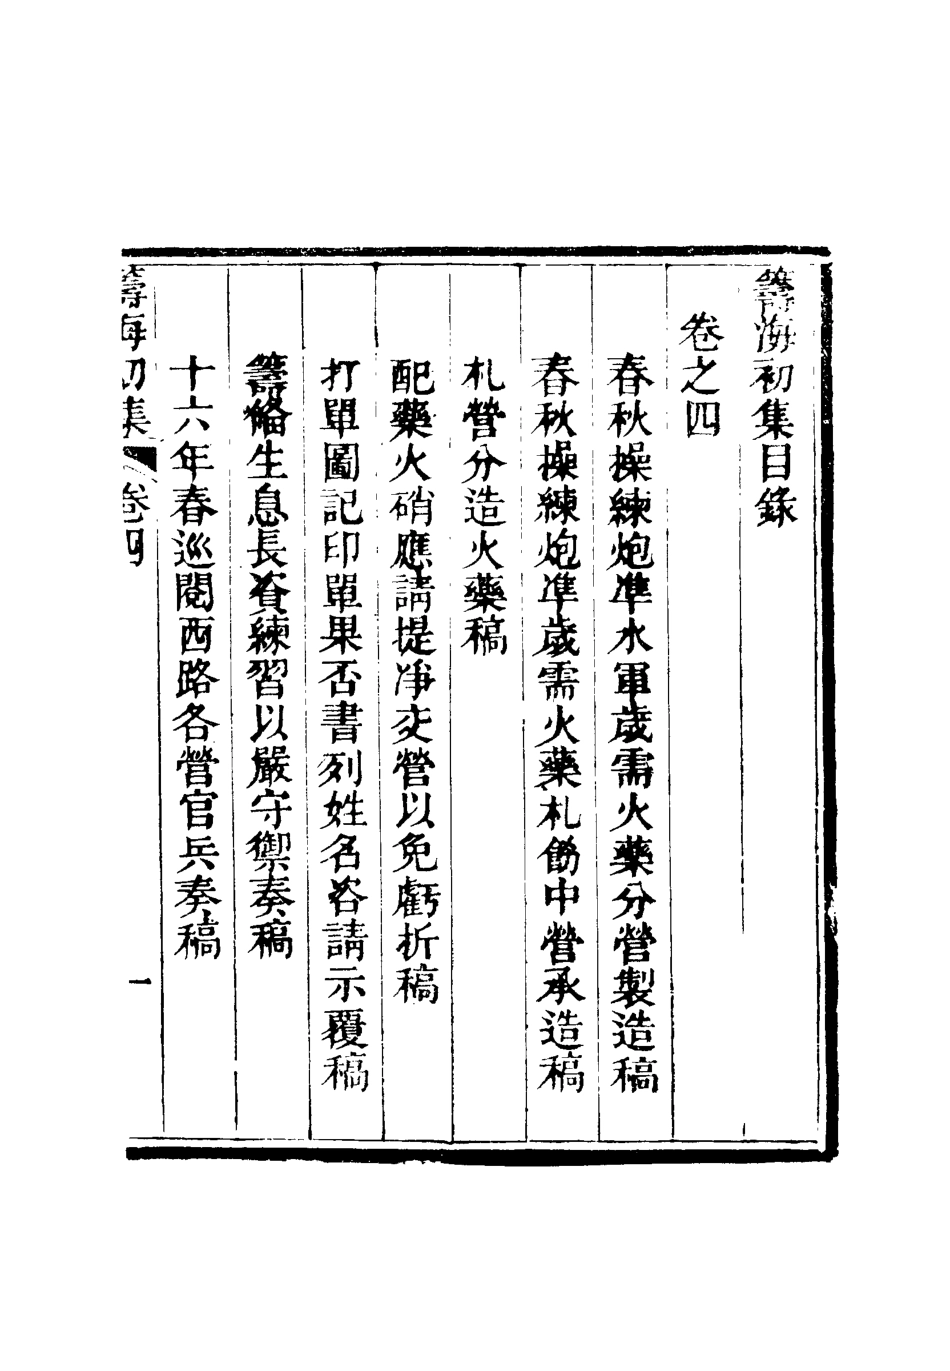 籌海初集目錄
卷之四
春秋操練炮準水軍歲需火藥分營製造稿
春秋操練炮準歲需火藥札飭中營承造稿
札營分造火藥稿
配藥火硝應請提淨交營以免虧折稿
打單圖記印單果否書列姓名咨請示覆稿
籌備生息長資練習以嚴守禦奏稿
十六年春巡閱西路各營官兵奏稿
籌海初集
卷四
一